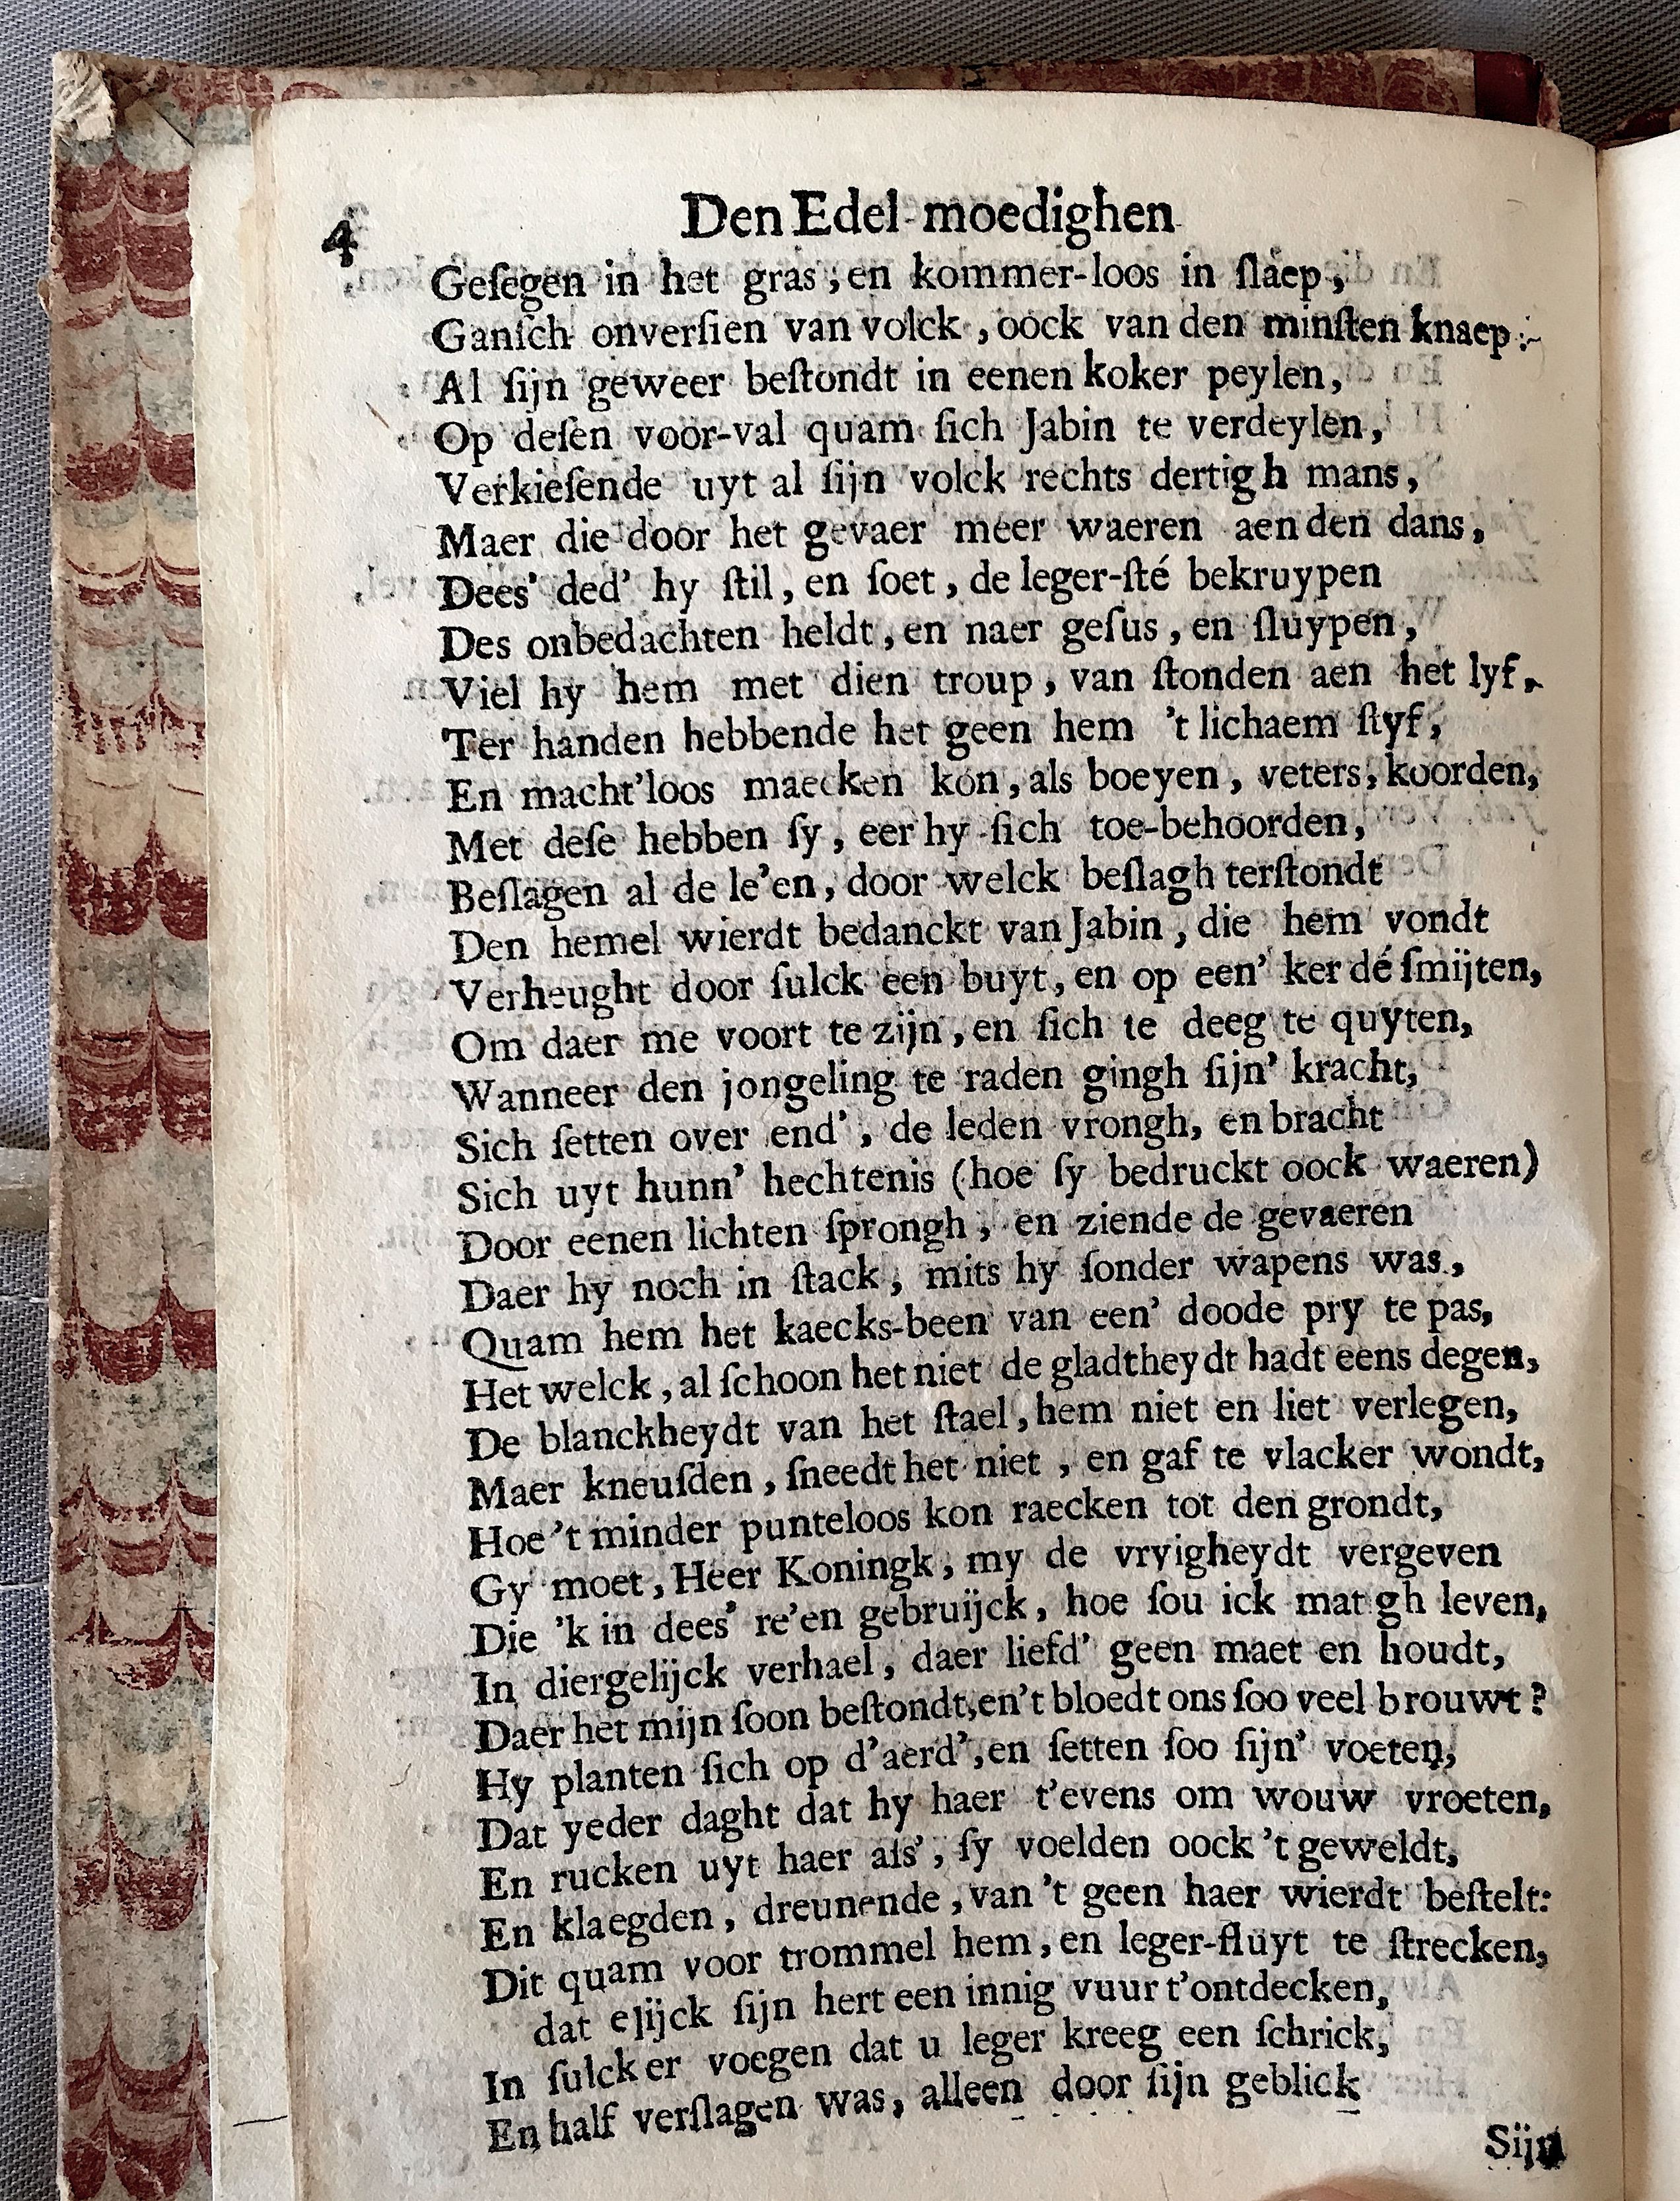 4
Den Edel-moedighen
Geſegen in het gras, en kommer-loos in ſlaep,
Ganſch onverſien van volck, oock van den minſten knaep:
Al ſijn geweer beſtondt in eenen koker peylen,
Op deſen voor-val quam ſich Jabin te verdeylen,
Verkieſende uyt al ſijn volck rechts dertigh mans,
Maer die door het gevaer meer waeren aen den dans,
Dees' ded' hy ſtil, en ſoet, de leger-ſté bekruypen
Des onbedachten heldt, en naer geſus, en ſluypen,
Viel hy hem met dien troup, van ſtonden aen het lyf,
Ter handen hebbende het geen hem 't lichaem ſtyf,
En macht'loos maecken kon, als boeyen, veters, koorden,
Met deſe hebben ſy, eer hy ſich toe-behoorden,
Beſlagen al de le'en, door welck beſlagh terſtondt
Den hemel wierdt bedanckt van Jabin, die hem vondt
Verheught door ſulck een buyt, en op een' ker dé ſmijten,
Om daer me voort te zijn, en ſich te deeg te quyten,
Wanneer den jongeling te raden gingh ſijn' kracht,
Sich ſetten over end', de leden vrongh, en bracht
Sich uyt hunn' hechtenis (hoe ſy bedruckt oock waeren)
Door eenen lichten ſprongh, en ziende de gevaeren
Daer hy noch in ſtack, mits hy ſonder wapens was,
Quam hem het kaecks-been van een' doode pry te pas,
Het welck, al ſchoon het niet de gladtheydt hadt eens degen,
De blanckheydt van het ſtael, hem niet en liet verlegen,
Maer kneuſden, ſneedt het niet, en gaf te vlacker wondt,
Hoe 't minder punteloos kon raecken tot den grondt,
Gy moet, Heer Koningk, my de vryigheydt vergeven
Die 'k in dees' re'en gebruijck, hoe ſou ick matigh leven,
In diergelijck verhael, daer liefd' geen maet en houdt,
Daer het mijn ſoon beſtondt, en't bloedt ons ſoo veel brouwt?
Hy planten ſich op d'aerd', en ſetten ſoo ſijn' voeten,
Dat yeder daght dat hy haer t'evens om wouw vroeten,
En rucken uyt haer als', ſy voelden oock 't geweldt,
En klaegden, dreunende, van 't geen haer wierdt beſtelt:
Dit quam voor trommel hem, en leger-fluyt te ſtrecken,
dat elijck ſijn hert een innig vuur t'ontdecken,
In ſulcker voegen dat u leger kreeg een ſchrick,
En half verſlagen was, alleen door ſijn geblick
Sijn